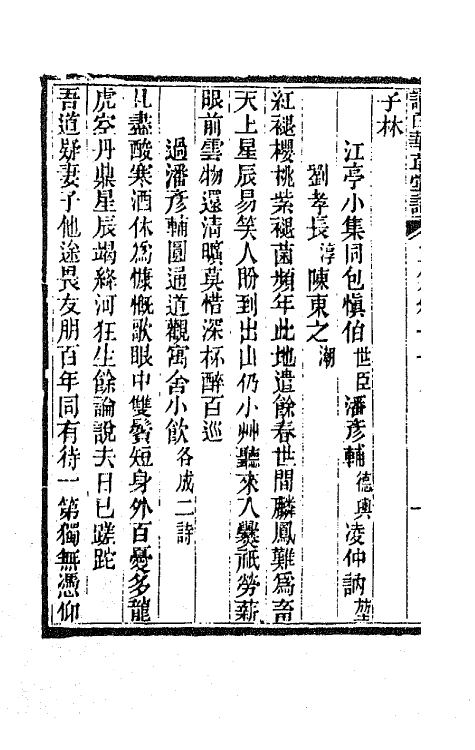 子林
江亭小集同包慎伯世臣潘彥輔德輿凌仲訥堃
劉孝長淳陳東之潮
紅褪櫻桃紫褪菌頻年此地遣餘春世間麟鳳難爲畜
天上星辰易笑人盼到出山仍小艸聽來入爨祇勞薪
眼前雲物還淸曠莫惜深杯醉百巡
過潘彥輔圓通道觀寓舍小飲各成二詩
札盡酸寒酒休爲慷慨歌眼中雙鬢短身外百憂多龍
虎空丹鼎星辰竭絳河狂生餘論說夫日已蹉跎
吾道疑妻子他途畏友朋百年同有待一第獨無憑仰